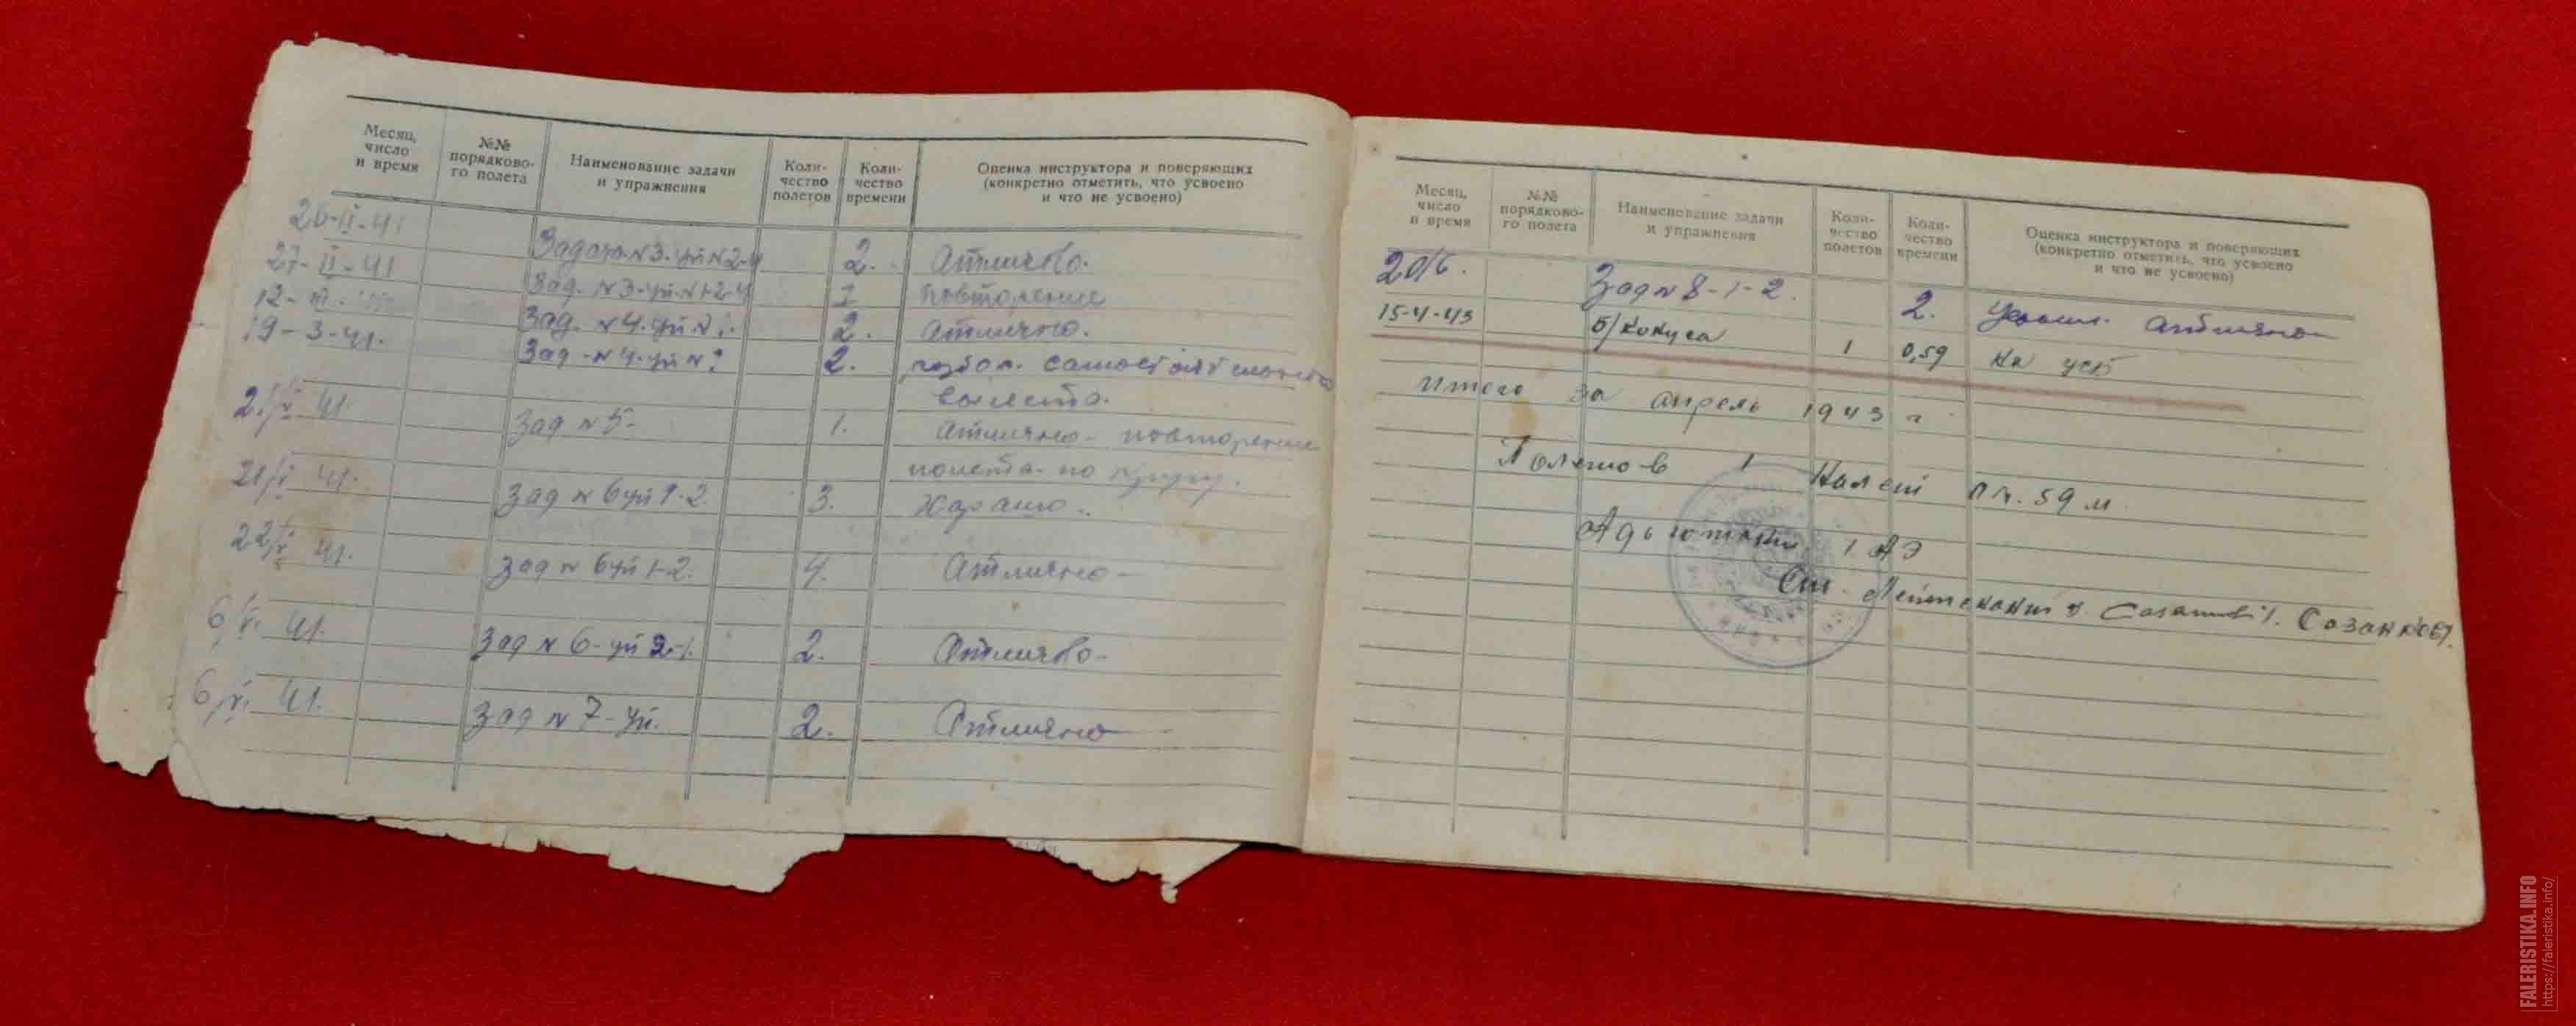 Месяц, число и время
№№ порядково-го полета
Наименование задачи и упражнения
Коли-чество полетов
Коли-чество времени
Оценка инструктора и поверяющих (конкретно отметить, что усвоено и что не усвоено)
26-II-41 Задача №3 уп №2-4 2. Отлично.
27-II-41 Зад. №3-уп. №1-2-4 1 Повторение
12-III- Зад. №4. уп. 2. Отлично.
19-3-41. Зад-№4-уп № 2. самостоятельного
вылета.
41. Зад №5- 1. Отлично- повторение
полета по кругу.
21/ 41. Зад №6 уп 1-2. 3. Хорошо..
22/V 41. Зад №6 уп 1-2. 4. Отлично-
6/VI. 41. Зад №6-уп 2-1. 2. Отлично-
6/VI 41. Зад №7-уп. 2. Отлично
Месяц, число и время
№№ порядково-го полета
Наименование задачи и упражнения
Коли-чество полетов
Коли-чество времени
Оценка инструктора и поверяющих (конкретно отметить, что усвоено и что не усвоено)
20/6. Зад №8-1-2. 2. отлично
15-4-43 1 0,59
Итого за апрель 1943 г
Полетов 1 Налет 59 м
Адъютант 1 АЭ
Ст. Лейтенант
FALERISTIKA.INFO
https://faleristika.info/